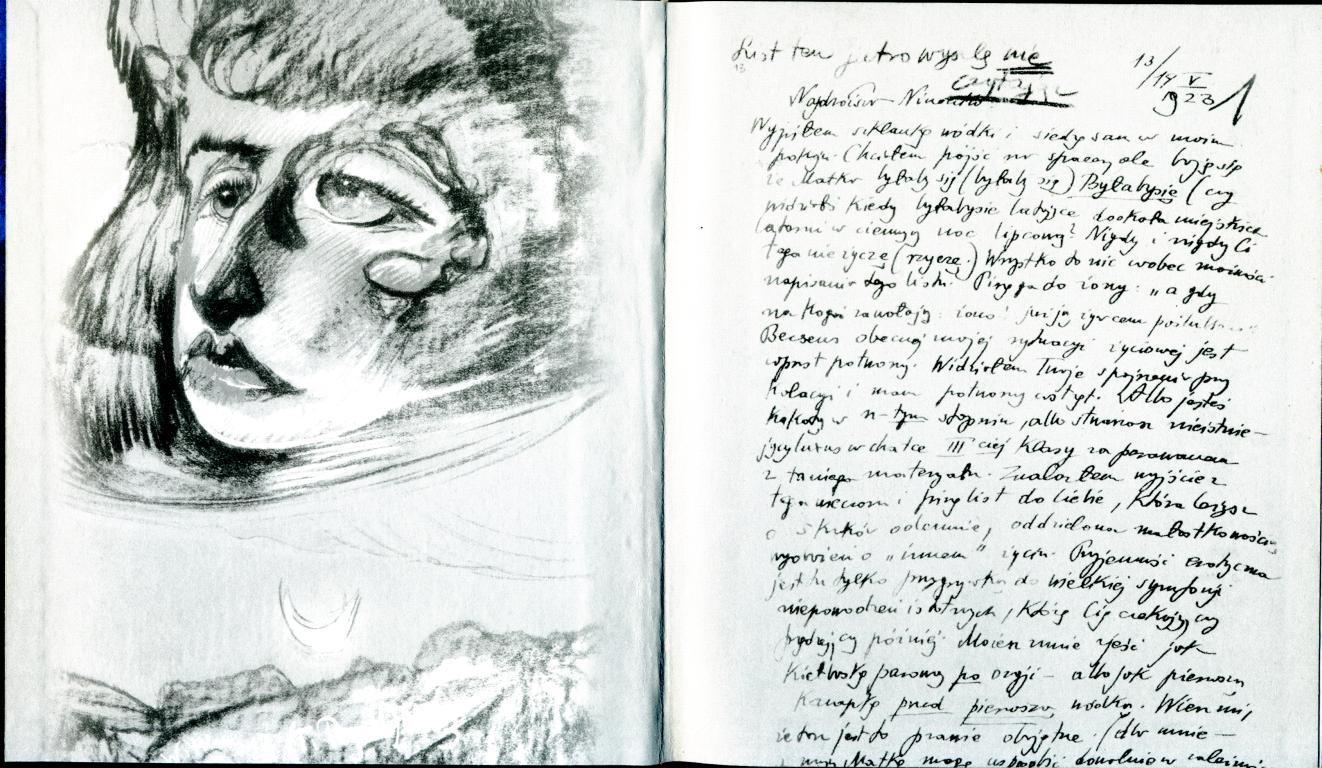 List ten jutro wyślę nie
czytając
13/14 V
1923
1
13
Najdroższa Ninusiu
Wypiłem szklankę wódki i siedzę sam w moim
pokoju. Chciałem pójść na spacer, ale boję się
że Matka byłaby się (byłaby się) Byłabysię (czy
widziałaś kiedy byłabysie latające dookoła miejskiej
latarni w ciemną noc lipcową? Nigdy i nigdy Ci
tego nie życzę (rzyczę.) Wszystko to nic wobec możności
napisania tego listu. Piszę do żony: „a gdy
na kogoś zawołają: żono! już ją żywcem
Bezsens obecnej mojej sytuacji życiowej jest
wprost potworny. Widziałem Twoje spojrzenie przy
kolacji i mam potworny wstyd. Albo jesteś
w n-tym stopniu, albo stwarzasz nieistnie-
w chatce III ciej klasy za parawanem
z taniego materjału. Znalazłem wyjście z
tego wieczoru i piszę list do Ciebie, która leżysz
o kroków odemnie, oddzielona małostkowością
o „innem" życiu. Przyjemność erotyczna
jest tu tylko przygrywką do wielkiej symfonji
niepowodzeń istotnych, które Cię czekają czy
prędzej czy później. Możesz mnie zjeść jak
kiełbaskę parową po orgji – albo jak pierwszą
kanapkę przed pierwszą wódką. Wierz mi,
że to jest to prawie obojętne. (dla mnie –
Matkę mogę